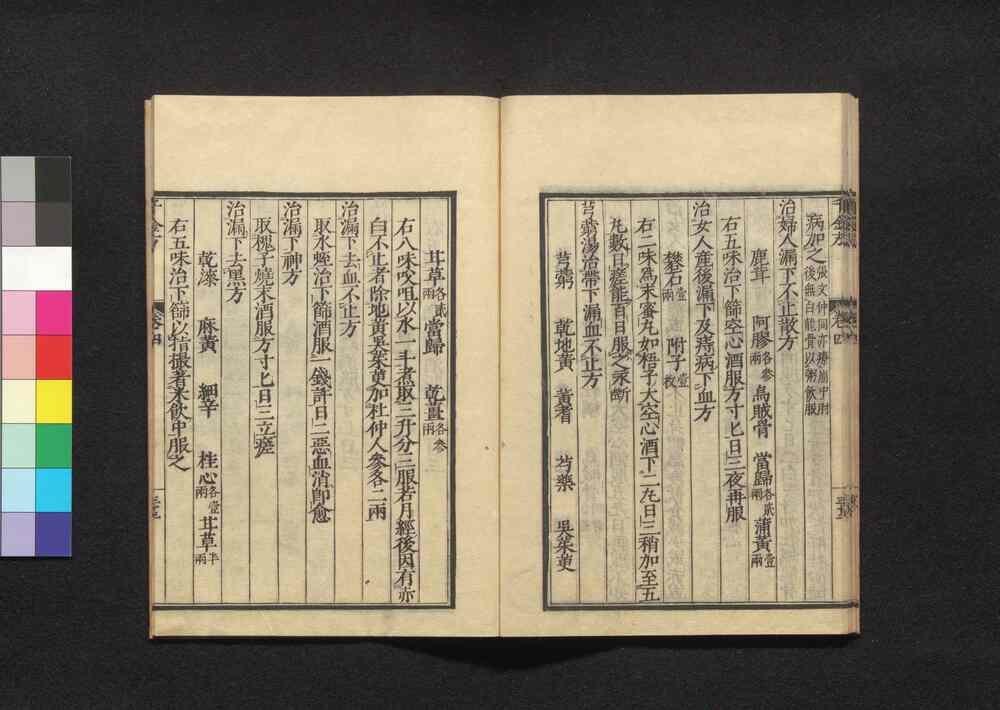 病如之張文仲同亦療崩中肘後無白龍骨以粥飲服
治婦人漏下不止散方
鹿茸 阿膠各參兩 烏賊骨 當歸各貳兩 蒲黃壹兩
右五味治下篩空心酒服方寸匕日三夜再服
治女人產後漏下及痔病下血方
礬石壹兩 附子壹枚
右二味為末蜜丸如梧子大空心酒下二丸日三稍加至五
丸數日瘥能百日服之永斷
芎藭湯治帶下漏血不止方
芎藭 乾地黃 黃耆 芍藥 吳茱萸
甘草各貳兩 當歸 乾薑各參兩
右八味㕮咀以水一斗煮取三升分三服若月經後因有赤
白不止者除地黃吳茱萸加杜仲人參各二兩
治漏下去血不止方
取水蛭治下篩酒服一錢許日二惡血消即愈
治漏下神方
取槐子燒末酒服方寸匕日三立瘥
治漏下去黑方
乾漆 麻黃 細辛 桂心各壹兩 甘草半兩
右五味治下篩以指撮著米飲中服之